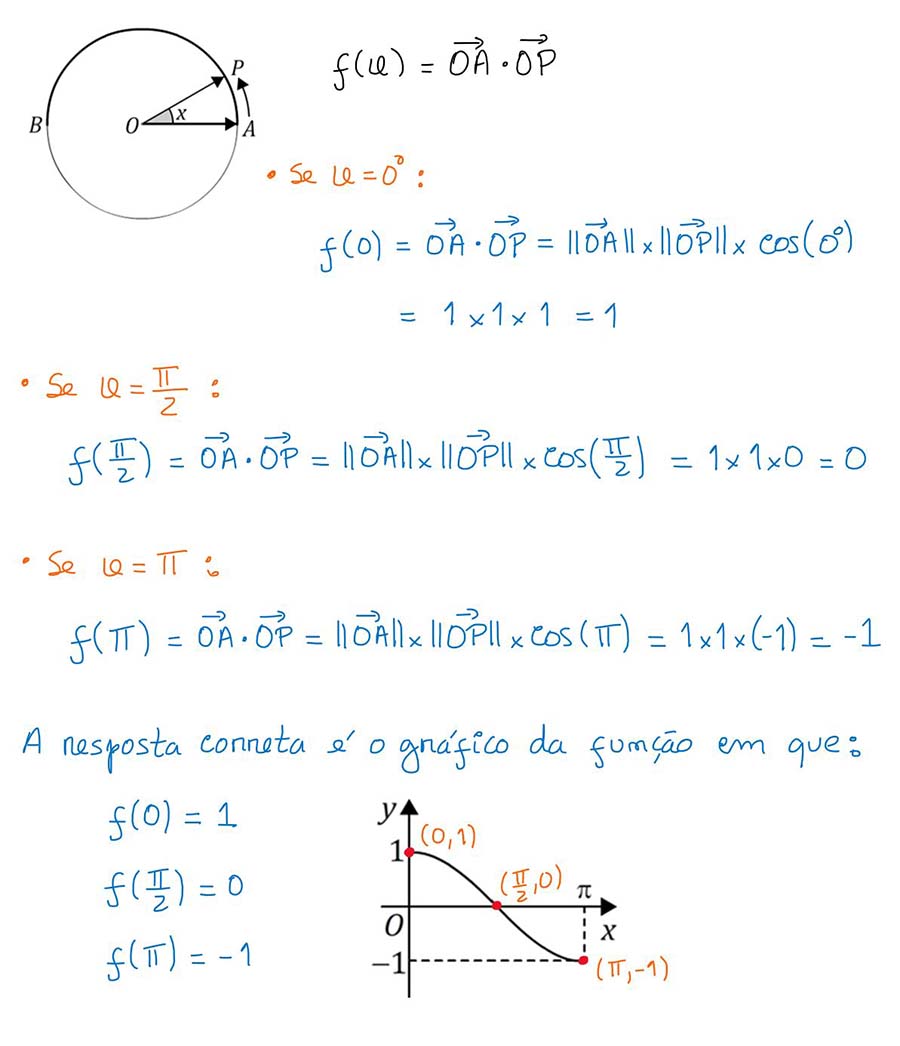 P
x
B
O
A
f(x) = OA⃗ · OP⃗
• Se x = 0° :
f(0) = OA⃗ · OP⃗ = ||OA⃗|| × ||OP⃗|| × cos(0°)
= 1 × 1 × 1 = 1
• Se x = π/2 :
f(π/2) = OA⃗ · OP⃗ = ||OA⃗|| × ||OP⃗|| × cos(π/2) = 1 × 1 × 0 = 0
• Se x = π :
f(π) = OA⃗ · OP⃗ = ||OA⃗|| × ||OP⃗|| × cos(π) = 1 × 1 × (-1) = -1
A resposta correta é o gráfico da função em que:
f(0) = 1
f(π/2) = 0
f(π) = -1
y
(0,1)
1
(π/2,0)
π
O
x
-1
(π,-1)